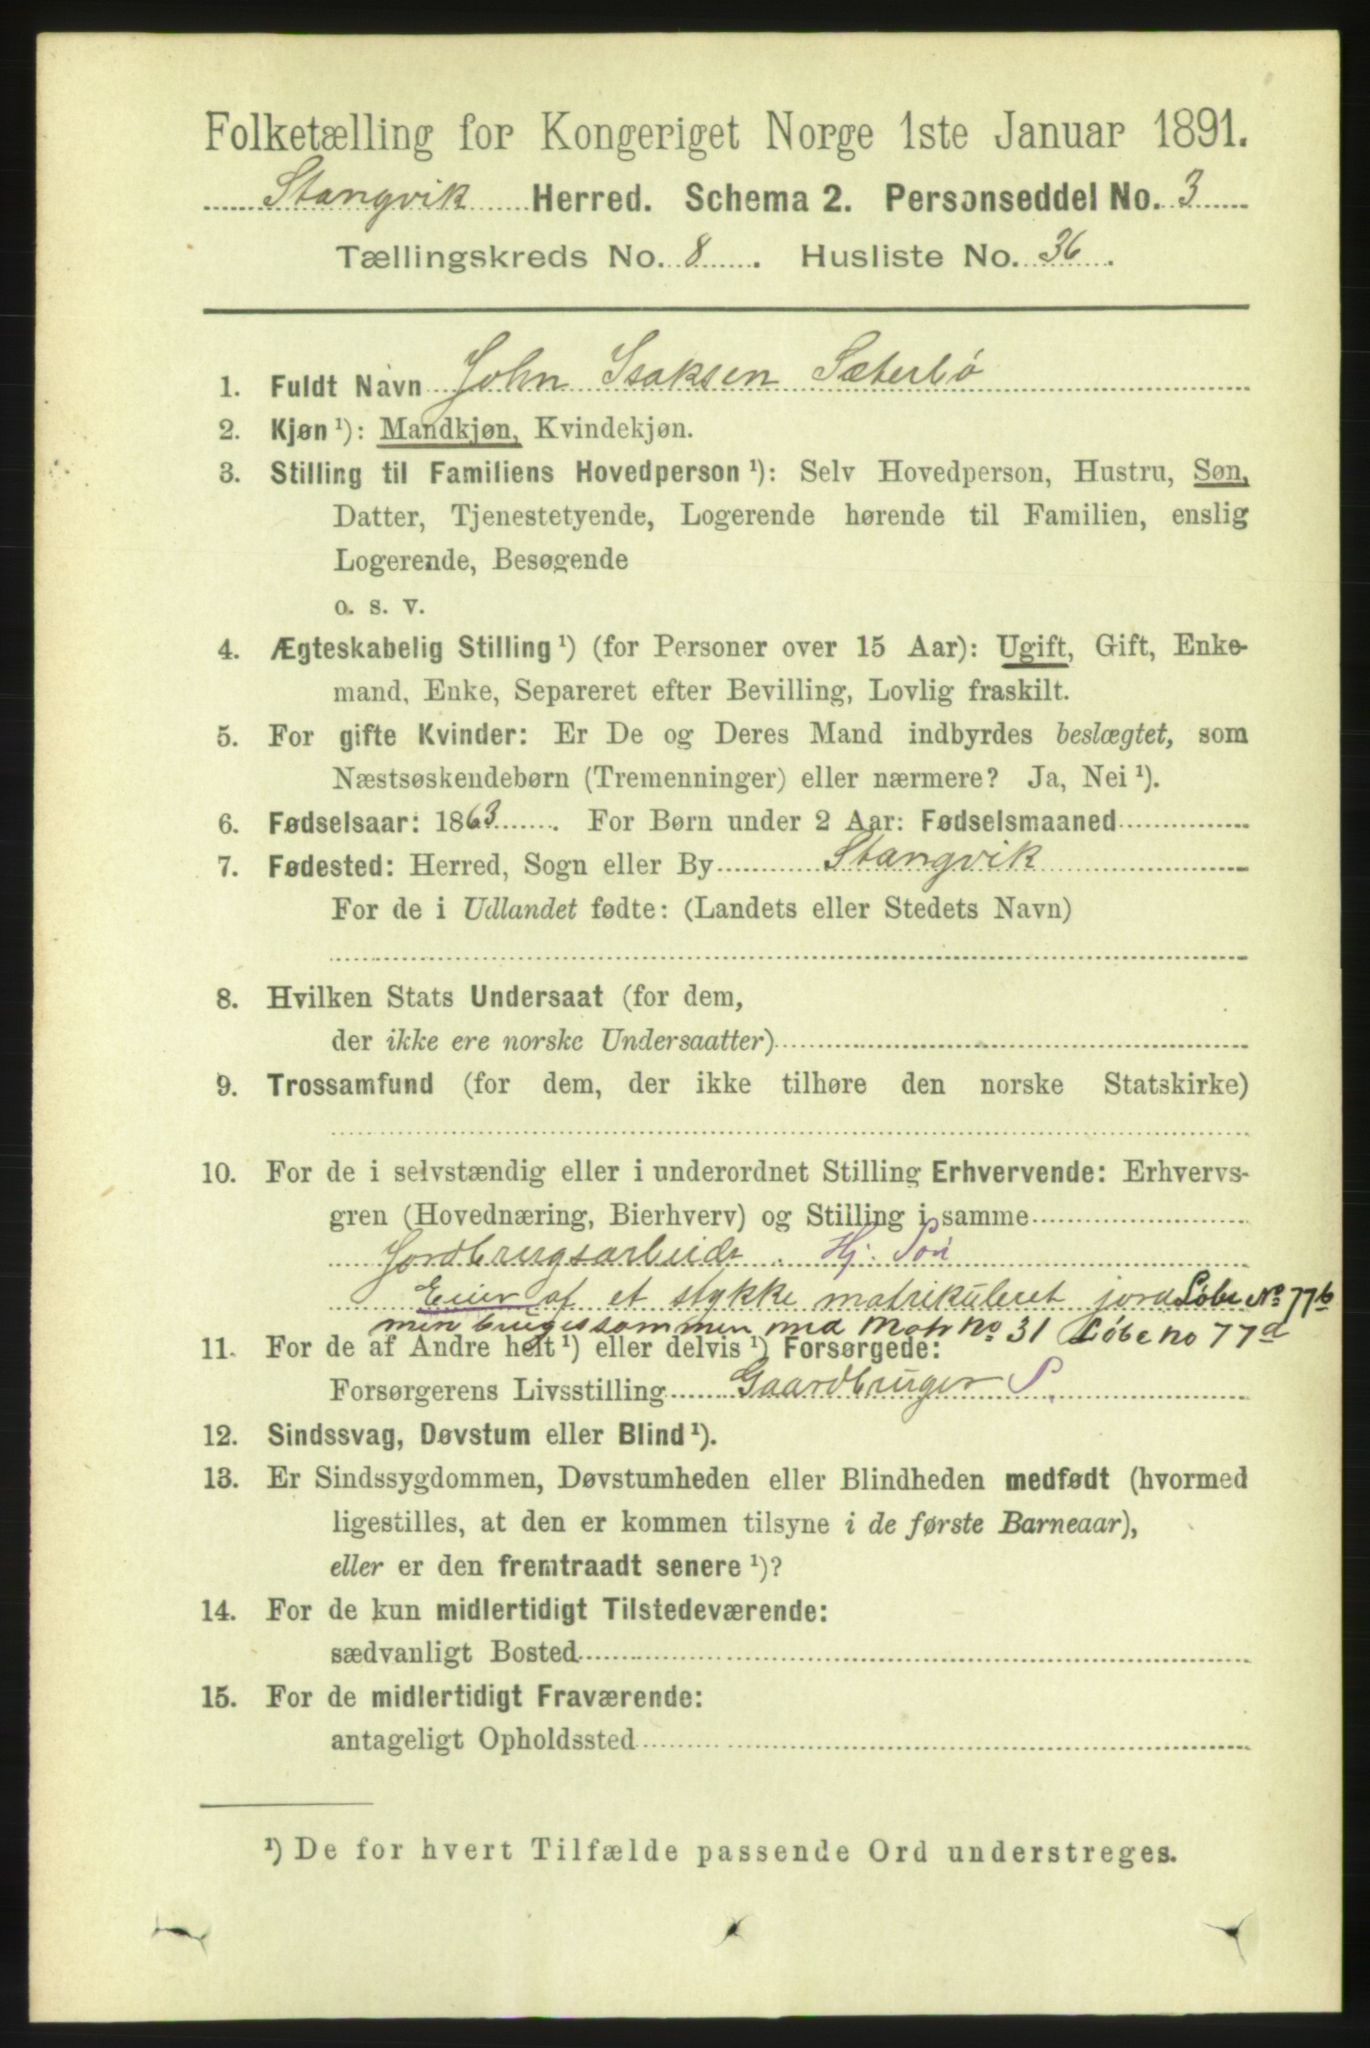 Folketælling for Kongeriget Norge 1ste Januar 1891.
Stangvik Herred. Schema 2. Personseddel No. 3
Tællingskreds No. 8. Husliste No. 36.
1. Fuldt Navn John Isaksen Sæterbö
2. Kjøn ¹): Mandkjøn, Kvindekjøn.
3. Stilling til Familiens Hovedperson ¹): Selv Hovedperson, Hustru, Søn,
Datter, Tjenestetyende, Logerende hørende til Familien, enslig
Logerende, Besøgende
o. s. v.
4. Ægteskabelig Stilling ¹) (for Personer over 15 Aar): Ugift, Gift, Enke-
mand, Enke, Separeret efter Bevilling, Lovlig fraskilt.
5. For gifte Kvinder: Er De og Deres Mand indbyrdes beslægtet, som
Næstsøskendebørn (Tremenninger) eller nærmere? Ja, Nei ¹).
6. Fødselsaar: 1863. For Børn under 2 Aar: Fødselsmaaned
7. Fødested: Herred, Sogn eller By Stangvik
For de i Udlandet fødte: (Landets eller Stedets Navn)
8. Hvilken Stats Undersaat (for dem,
der ikke ere norske Undersaatter)
9. Trossamfund (for dem, der ikke tilhøre den norske Statskirke)
10. For de i selvstændig eller i underordnet Stilling Erhvervende: Erhvervs-
gren (Hovednæring, Bierhverv) og Stilling i samme
Jordbrugsarbeide. Hj. Søn
Eier af et stykke matrikuleret jord Löbe No 77b
men bruges sammen med Matr no 31 Löbe no 77a
11. For de af Andre helt ¹) eller delvis ¹) Forsørgede:
Forsørgerens Livsstilling Gaardbruger S.
12. Sindssvag, Døvstum eller Blind ¹).
13. Er Sindssygdommen, Døvstumheden eller Blindheden medfødt (hvormed
ligestilles, at den er kommen tilsyne i de første Barneaar),
eller er den fremtraadt senere ¹)?
14. For de kun midlertidigt Tilstedeværende:
sædvanligt Bosted
15. For de midlertidigt Fraværende:
antageligt Opholdssted
¹) De for hvert Tilfælde passende Ord understreges.